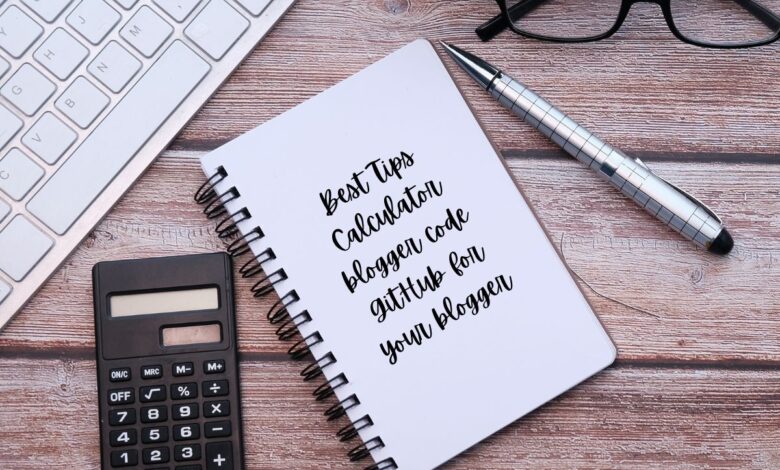 Best Tips
Calculator
blogger code
gitHub for
your blogger
G H J
V B N M
ON/C MRC M- M+
OFF √ % ÷
7 8 9 ×
4 5 6 -
1 2 3 +